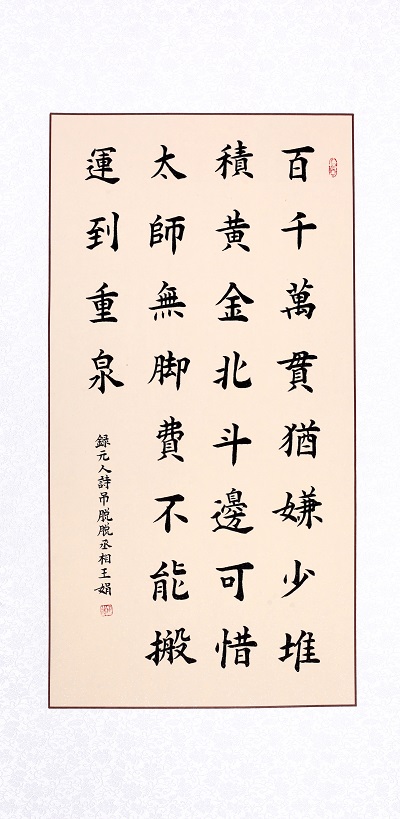 百千萬貫猶嫌少堆
積黄金北斗邊可惜
太師無脚費不能搬
運到重泉
録元人詩吊脱脱丞相王娟